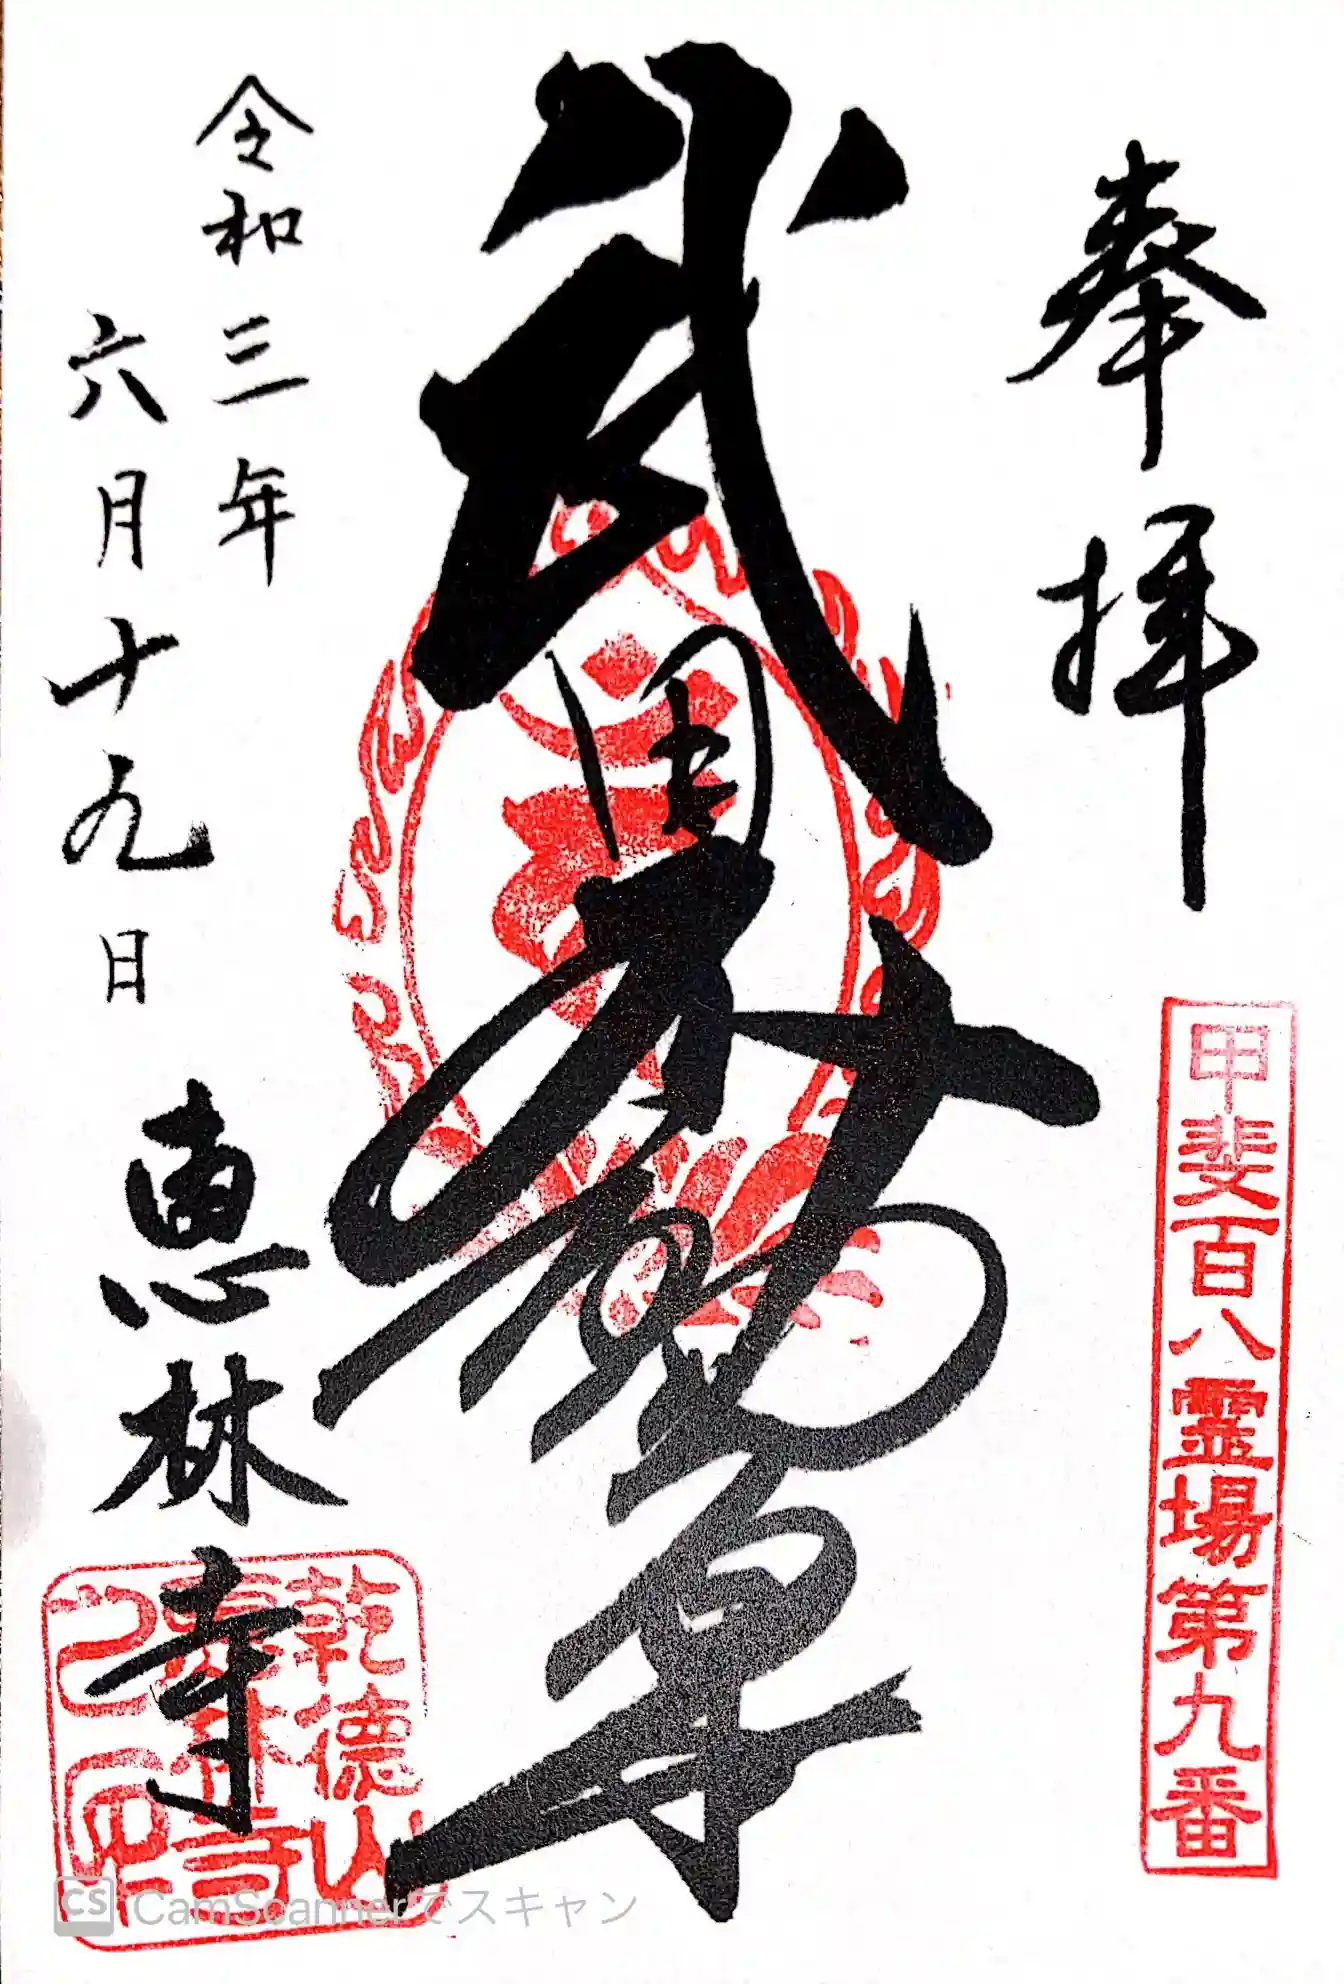 奉拝
甲斐百八霊場第九番
武田不動尊
令和三年
六月十九日
恵林寺
乾徳山
恵林寺
CS CamScannerでスキャン